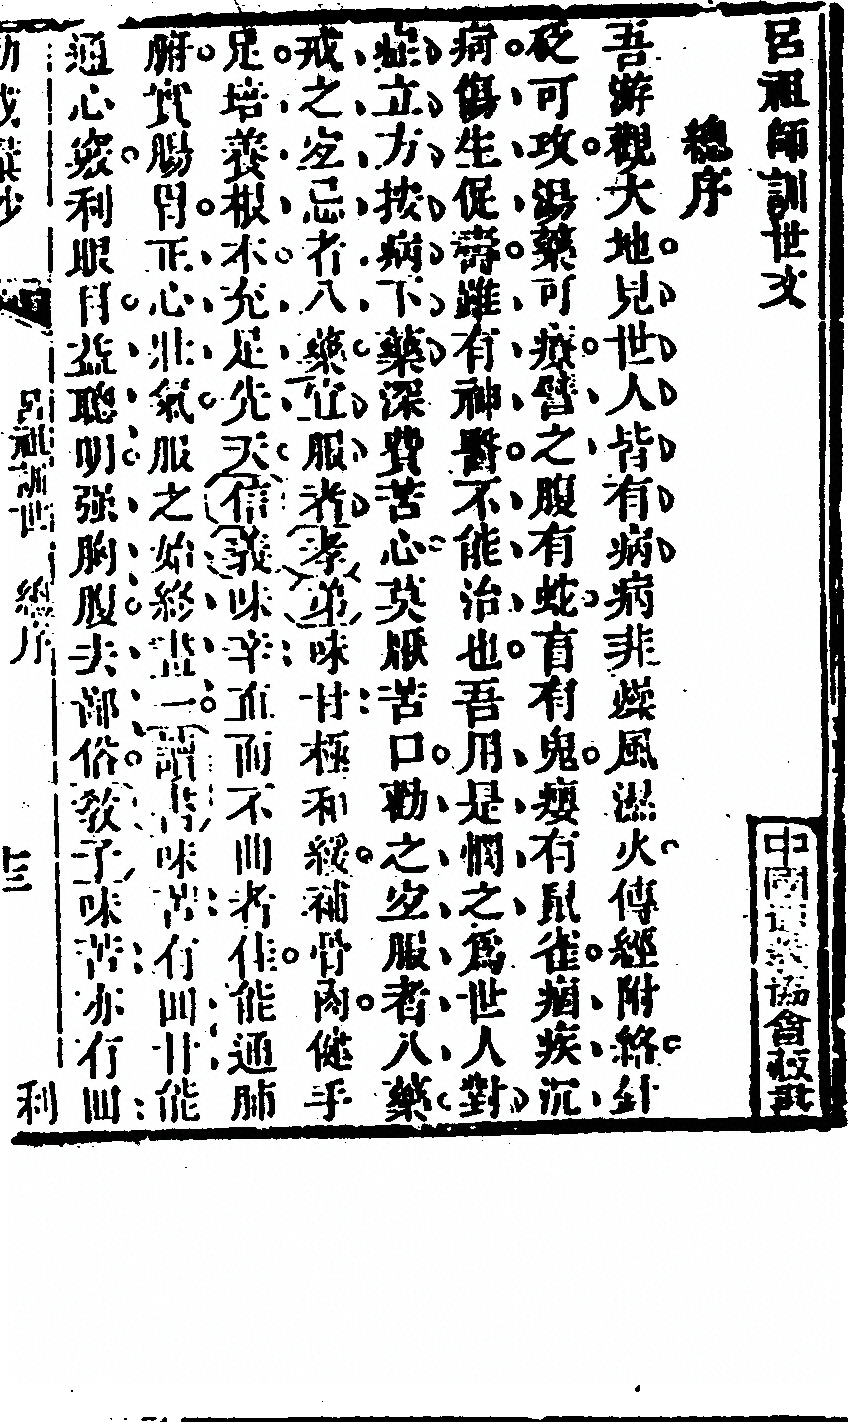 呂祖師訓世文
總序
吾游觀大地見世人皆有病病非燥風濕火傳經附絡針
砭可攻湯藥可療譬之腹有蛇盲有鬼癭有鼠雀痼疾沉
疴傷生促壽雖有神醫不能治也吾用是憫之為世人對
症立方按病下藥深費苦心莫厭苦口勸之宜服者八藥
戒之宜忌者八藥宜服者孝弟味甘極和緩補骨肉健手
足培養根本充足先天信義味辛直而不曲者佳能通肺
腑實腸胃正心壯氣服之始終盡一讀書味苦有回甘能
通心竅利眼目益聰明强胸腹去鄙俗教子味苦亦有回
呂祖訓世 總序
十三
利